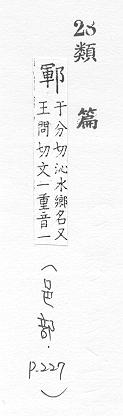 28
類篇
鄆
于分切沁水鄉名又
王問切文一重音一
(邑部.
p.227)